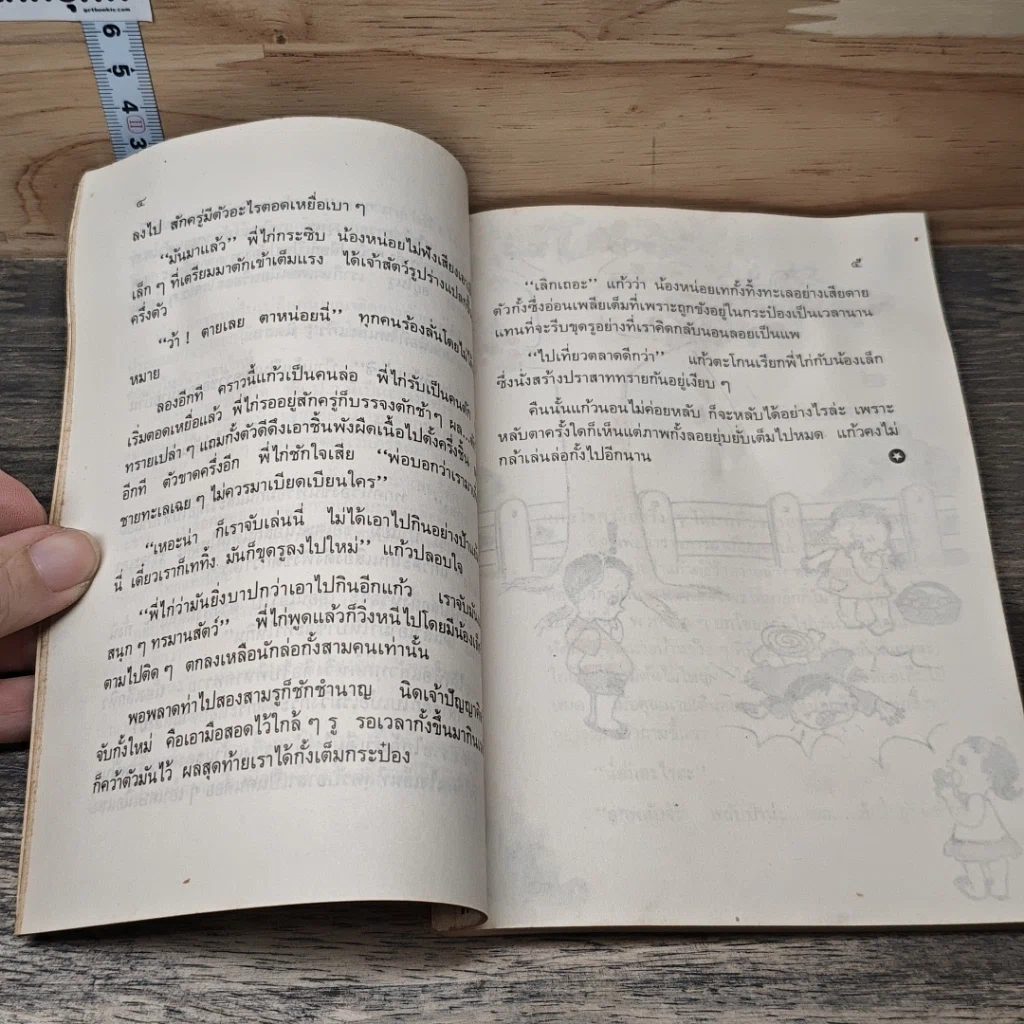 getbookie.com
6
5
4
3
๔
ลงไป สักครู่มีตัวอะไรตอดเหยื่อเบา ๆ
“มันมาแล้ว” พี่ไก่กระซิบ น้องหน่อยไม่ฟังเสียง
เล็ก ๆ ที่เตรียมมาตักเข้าเต็มแรง ได้เจ้าสัตว์รูปร่าง
ครึ่งตัว
“ว้า ! ตายเลย ตาหน่อยนี่” ทุกคนร้องลั่นโดย
หมาย
ลองอีกที คราวนี้แก้วเป็นคนล่อ พี่ไก่รับเป็นคนตัก
เริ่มตอดเหยื่อแล้ว พี่ไก่รออยู่สักครู่ก็บรรจงตักช้าๆ ผล...
ทรายเปล่า ๆ แถมกั้งตัวดีดึงเอาชิ้นพังผืดเนื้อไปตั้งครึ่งชิ้น
อีกที ตัวขาดครึ่งอีก พี่ไก่ชักใจเสีย “พ่อบอกว่าเรามา
ชายทะเลเฉย ๆ ไม่ควรมาเบียดเบียนใคร”
“เหอะน่า ก็เราจับเล่นนี่ ไม่ได้เอาไปกินอย่างป้า
นี่ เดี๋ยวเราก็เททิ้ง มันก็ขุดรูลงไปใหม่” แก้วปลอบใจ
“พี่ไก่ว่ามันยิ่งบาปกว่าเอาไปกินอีกแก้ว เราจับมัน
สนุก ๆ ทรมานสัตว์” พี่ไก่พูดแล้วก็วิ่งหนีไปโดยมีน้องเล็ก
ตามไปติด ๆ ตกลงเหลือนักล่อกั้งสามคนเท่านั้น
พอพลาดท่าไปสองสามรูก็ชักชำนาญ นิดเจ้าปัญญา
จับกั้งใหม่ คือเอามือสอดไว้ใกล้ ๆ รู รอเวลากั้งขึ้นมากิน
ก็คว้าตัวมันไว้ ผลสุดท้ายเราได้กั้งเต็มกระป๋อง
๕
“เลิกเถอะ” แก้วว่า น้องหน่อยเทกั้งทิ้งทะเลอย่างเสียดาย
ตัวกั้งซึ่งอ่อนเพลียเต็มที่เพราะถูกขังอยู่ในกระป๋องเป็นเวลานาน
แทนที่จะรีบขุดรูอย่างที่เราคิดกลับนอนลอยเป็นแพ
“ไปเที่ยวตลาดดีกว่า” แก้วตะโกนเรียกพี่ไก่กับน้องเล็ก
ซึ่งนั่งสร้างปราสาททรายกันอยู่เงียบ ๆ
คืนนั้นแก้วนอนไม่ค่อยหลับ ก็จะหลับได้อย่างไรล่ะ เพราะ
หลับตาครั้งใดก็เห็นแต่ภาพกั้งลอยยุ่บยั่บเต็มไปหมด แก้วคงไม่
กล้าเล่นล่อกั้งไปอีกนาน